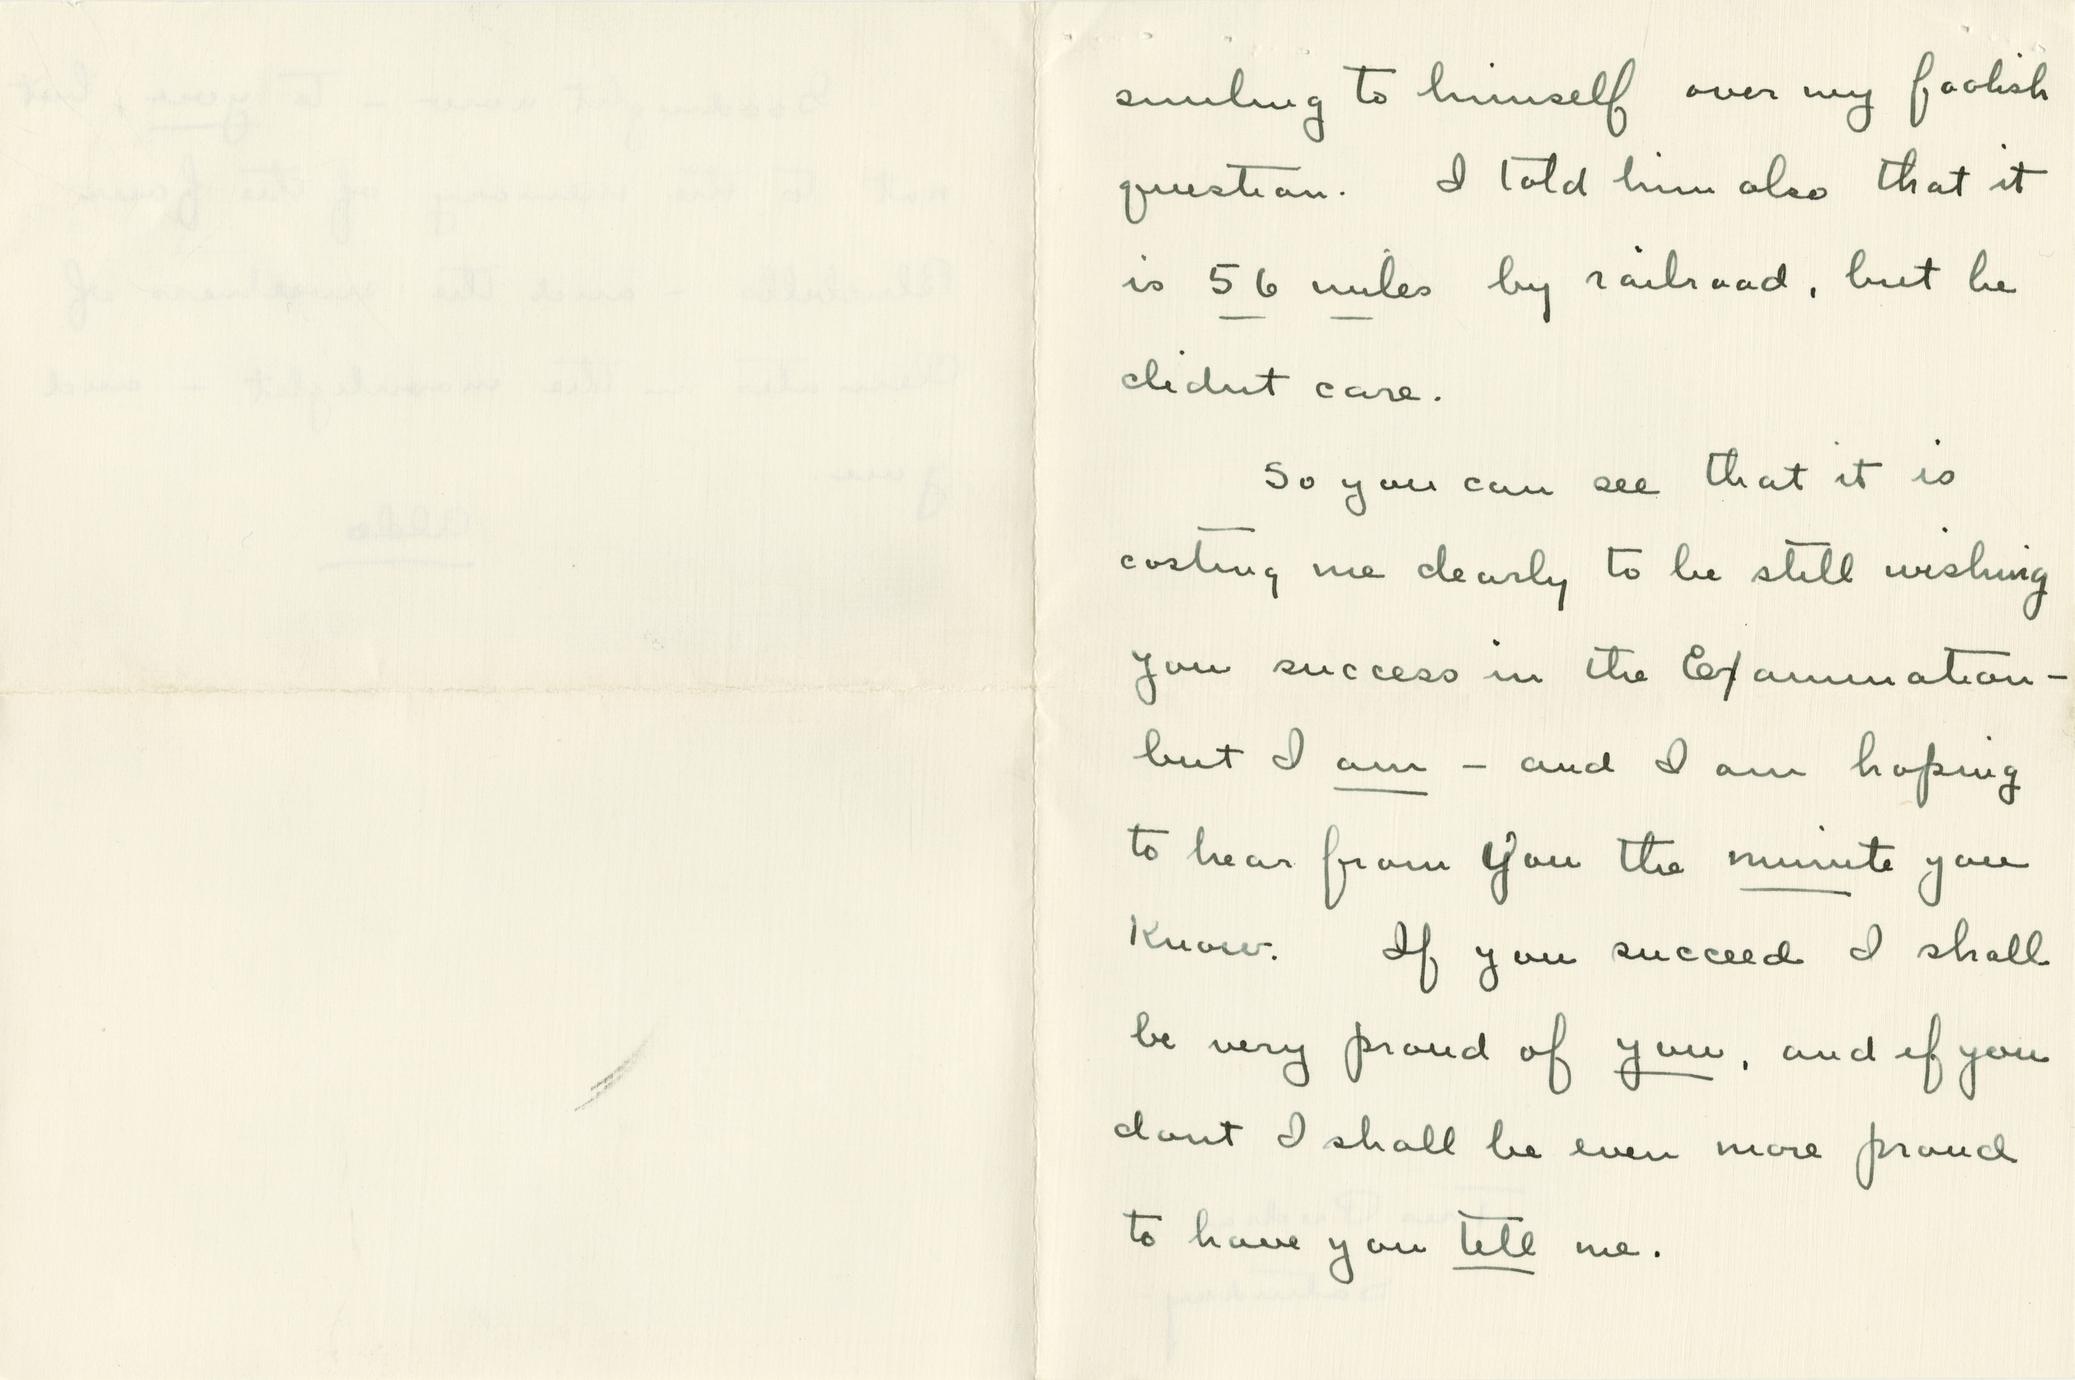 smiling to himself over my foolish
question. I told him also that it
is 56 miles by railroad, but he
didnt care.
So you can see that it is
costing me dearly to be still wishing
you success in the Examination —
but I am — and I am hoping
to hear from you the minute you
Know. If you succeed I shall
be very proud of you, and if you
dont I shall be even more proud
to have you tell me.